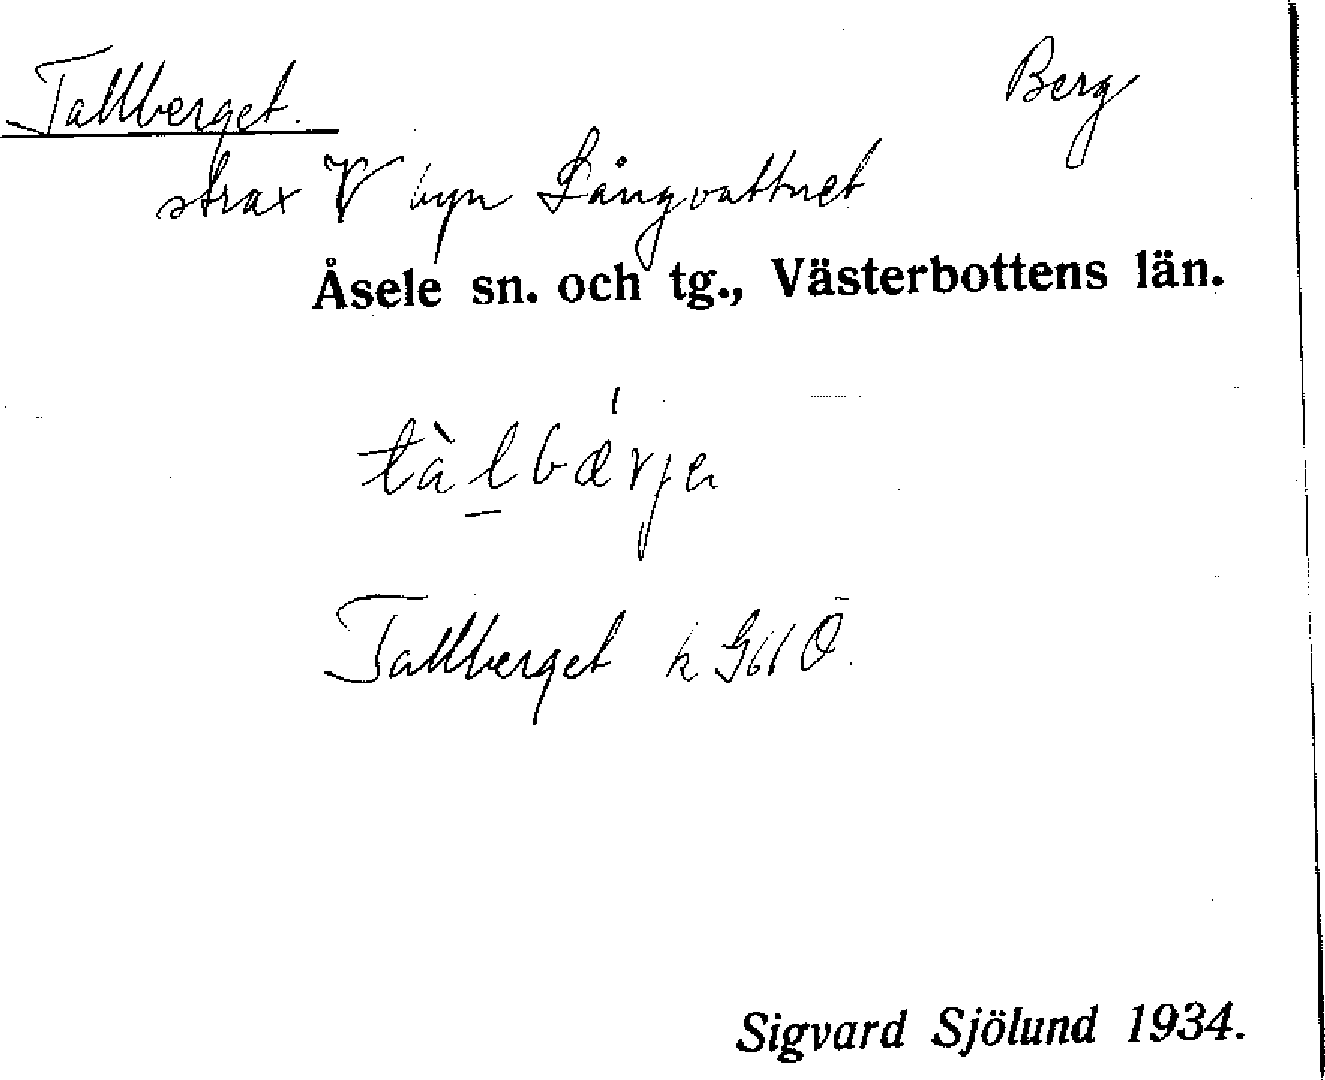 Tallberget. Berg
strax V byn Långvattnet
Åsele sn. och tg., Västerbottens län.
tàlbærja
Tallberget k G661 Ö
Sigvard Sjölund 1934.